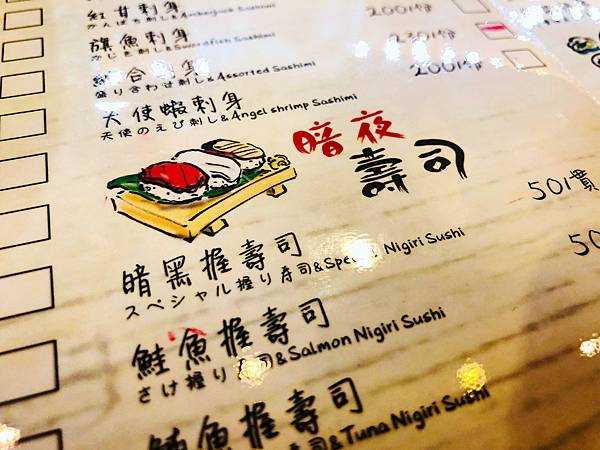 紅甘刺身
かんぱち刺し&Amberjack Sashimi
200/份
旗魚刺身
かじき刺し&Swordfish Sashimi
230/份
綜合刺身
盛り合わせ刺し&Assorted Sashimi
200/份
天使蝦刺身
天使のえび刺し&Angel shrimp Sashimi
暗夜
壽司
暗黑握壽司
スペシャル握り寿司&Special Nigiri Sushi
50/貫
鮭魚握壽司
さけ握り寿司&Salmon Nigiri Sushi
50
鮪魚握壽司
寿司&Tuna Nigiri Sushi